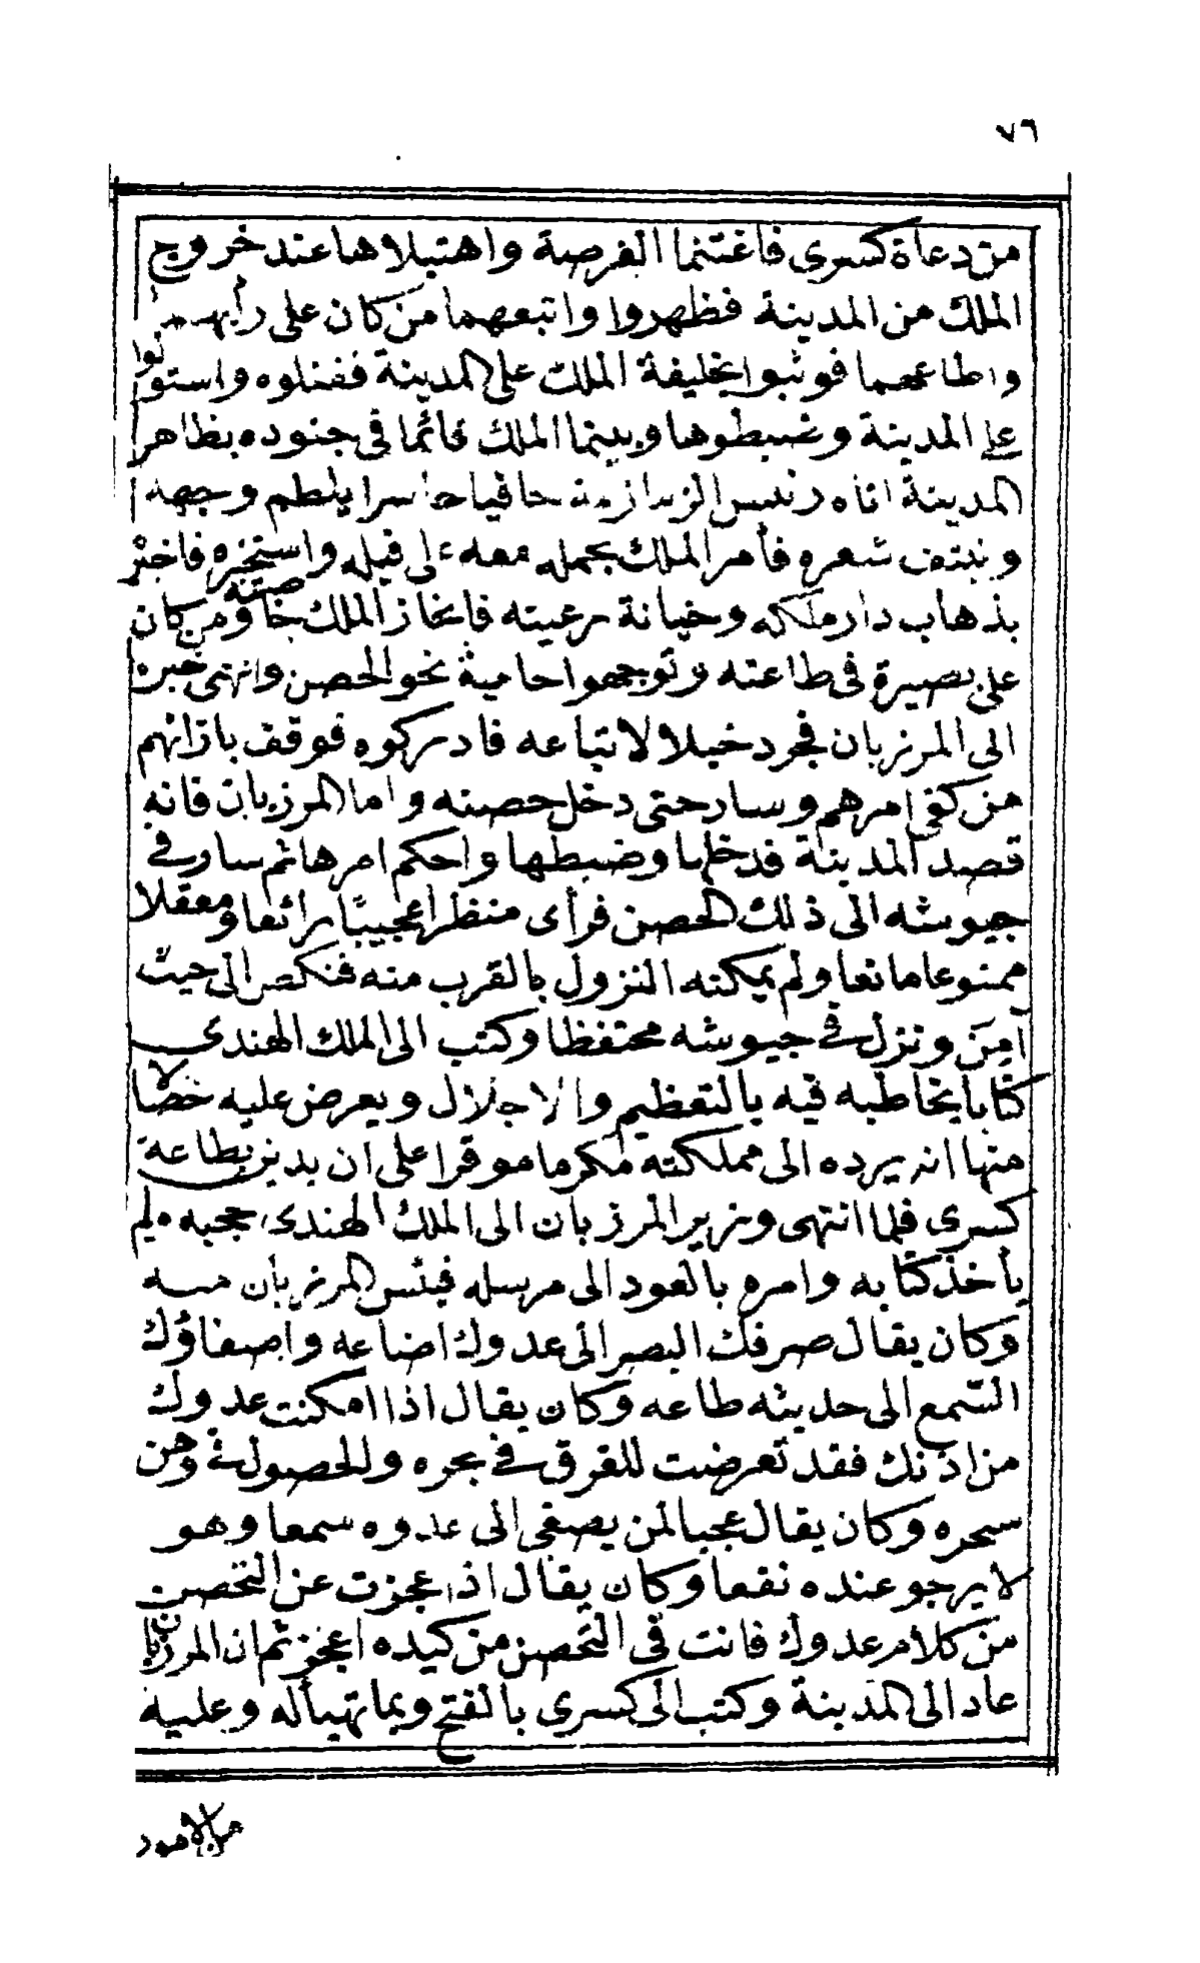 ٧٦
من دعاة كسرى فاغتنما الفرصة واهتبلاها عند خروج
الملك من المدينة فظهروا واتبعهما من كان على رأيهما
واطاعهما فوثبوا بخليفة الملك على المدينة فقتلوه واستولوا
على المدينة وضبطوها وبينما الملك قائما فى جنوده بظاهر
المدينة اتاه رئيس الزمازمة حافيا حاسرا يلطم وجهه
وينتف شعره فأمر الملك بحمله معه على فيله واستخبره فاخبر
بذهاب دار ملكه وخيانة رعيته فانحاز الملك خاصته ومن كان
على بصيرة فى طاعته وتوجهوا حامية نحو الحصن وانتهى خبره
الى المرزبان فجرد خيلا لاتباعه فادركوه فوقف بازائهم
من كفى امرهم وسار حتى دخل حصنه واما المرزبان فانه
قصد المدينة فدخلها وضبطها واحكم امرها ثم سار فى
جيوشه الى ذلك الحصن فرأى منظرا عجيبًا رائعا ومعقلا
ممنوعا مانعا ولم يمكنه النزول بالقرب منه فنكص الى حيث
آمِنَ ونزل فى جيوشه محتفظا وكتب الى الملك الهندى
كتابا يخاطبه فيه بالتعظيم والاجلال ويعرض عليه خصالا
منها انه يرده الى مملكته مكرما موقرا على ان يدين بطاعة
كسرى فلما انتهى وزير المرزبان الى الملك الهندى حجبه ولم
يأخذ كتابه وامره بالعود الى مرسله فيئس المرزبان منه
وكان يقال صرفك البصر الى عدوك اضاعه واصغاؤك
السّمع الى حديثه طاعه وكان يقال اذا امكنت عدوك
من اذنك فقد تعرضت للغرق فى بحره وللحصول فى وهن
سحره وكان يقال عجبا لمن يصغى الى عدوه سمعا وهو
لا يرجو عنده نفعا وكان يقال اذا عجزت عن التحصن
من كلام عدوك فانت فى التحصن من كيده اعجز ثم ان المرزبان
عاد الى المدينة وكتب الى كسرى بالفتح وبما تهيأ له وعليه
من الامور